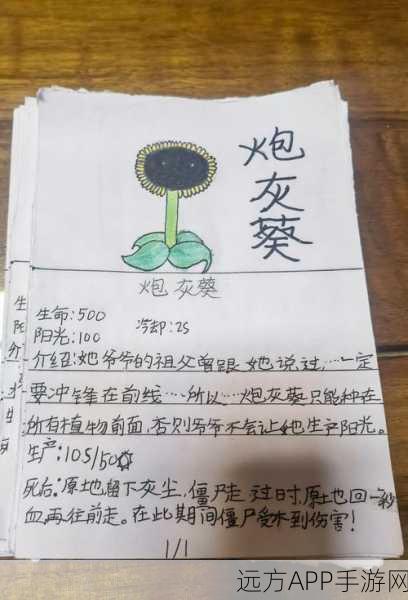 炮
灰
葵
炮灰葵
生命:500
阳光:100
冷却:2S
介绍:她爷爷的祖父曾跟她说过,…一定
要冲锋在前线…所以…炮灰葵只能种在
所有植物前面,否则爷爷不会让她生产阳光。
生产:10S/50
死后:原地留下灰尘,僵尸走过时,原地回一秒
血,再往前走。在此期间僵尸受不到伤害!
1/1
生
阳
介
远方APP手游网